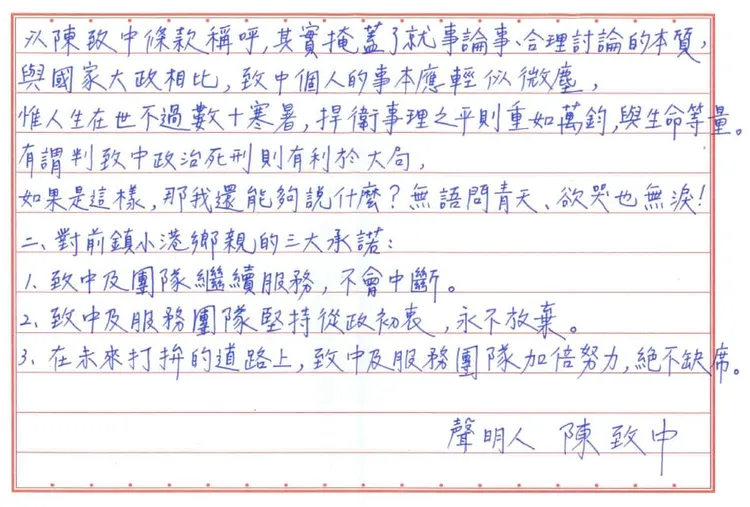 以陳致中條款稱呼,其實掩蓋了就事論事、合理討論的本質,
與國家大政相比,致中個人的事本應輕似微塵,
惟人生在世不過數十寒暑,捍衛事理之平則重如萬鈞,與生命等量。
有謂判致中政治死刑則有利於大局,
如果是這樣,那我還能夠說什麼?無語問青天、欲哭也無淚!
二、對前鎮小港鄉親的三大承諾:
1. 致中及團隊繼續服務,不會中斷。
2. 致中及服務團隊堅持從政初衷,永不放棄。
3. 在未來打拚的道路上,致中及服務團隊加倍努力,絕不缺席。
聲明人 陳致中